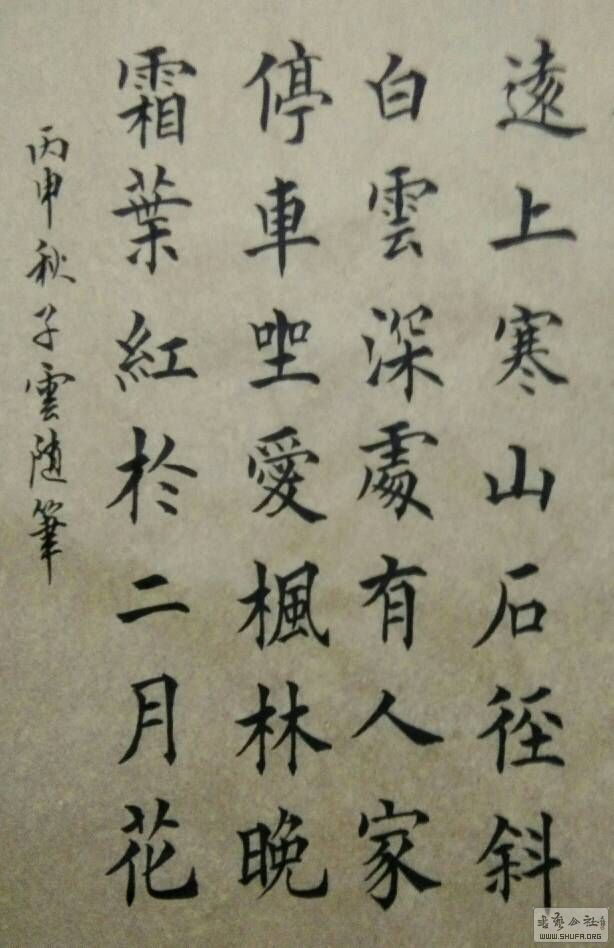 遠上寒山石徑斜
白雲深處有人家
停車坐愛楓林晚
霜葉紅於二月花
丙申秋子雲随筆
书法公社
WWW.SHUFA.ORG